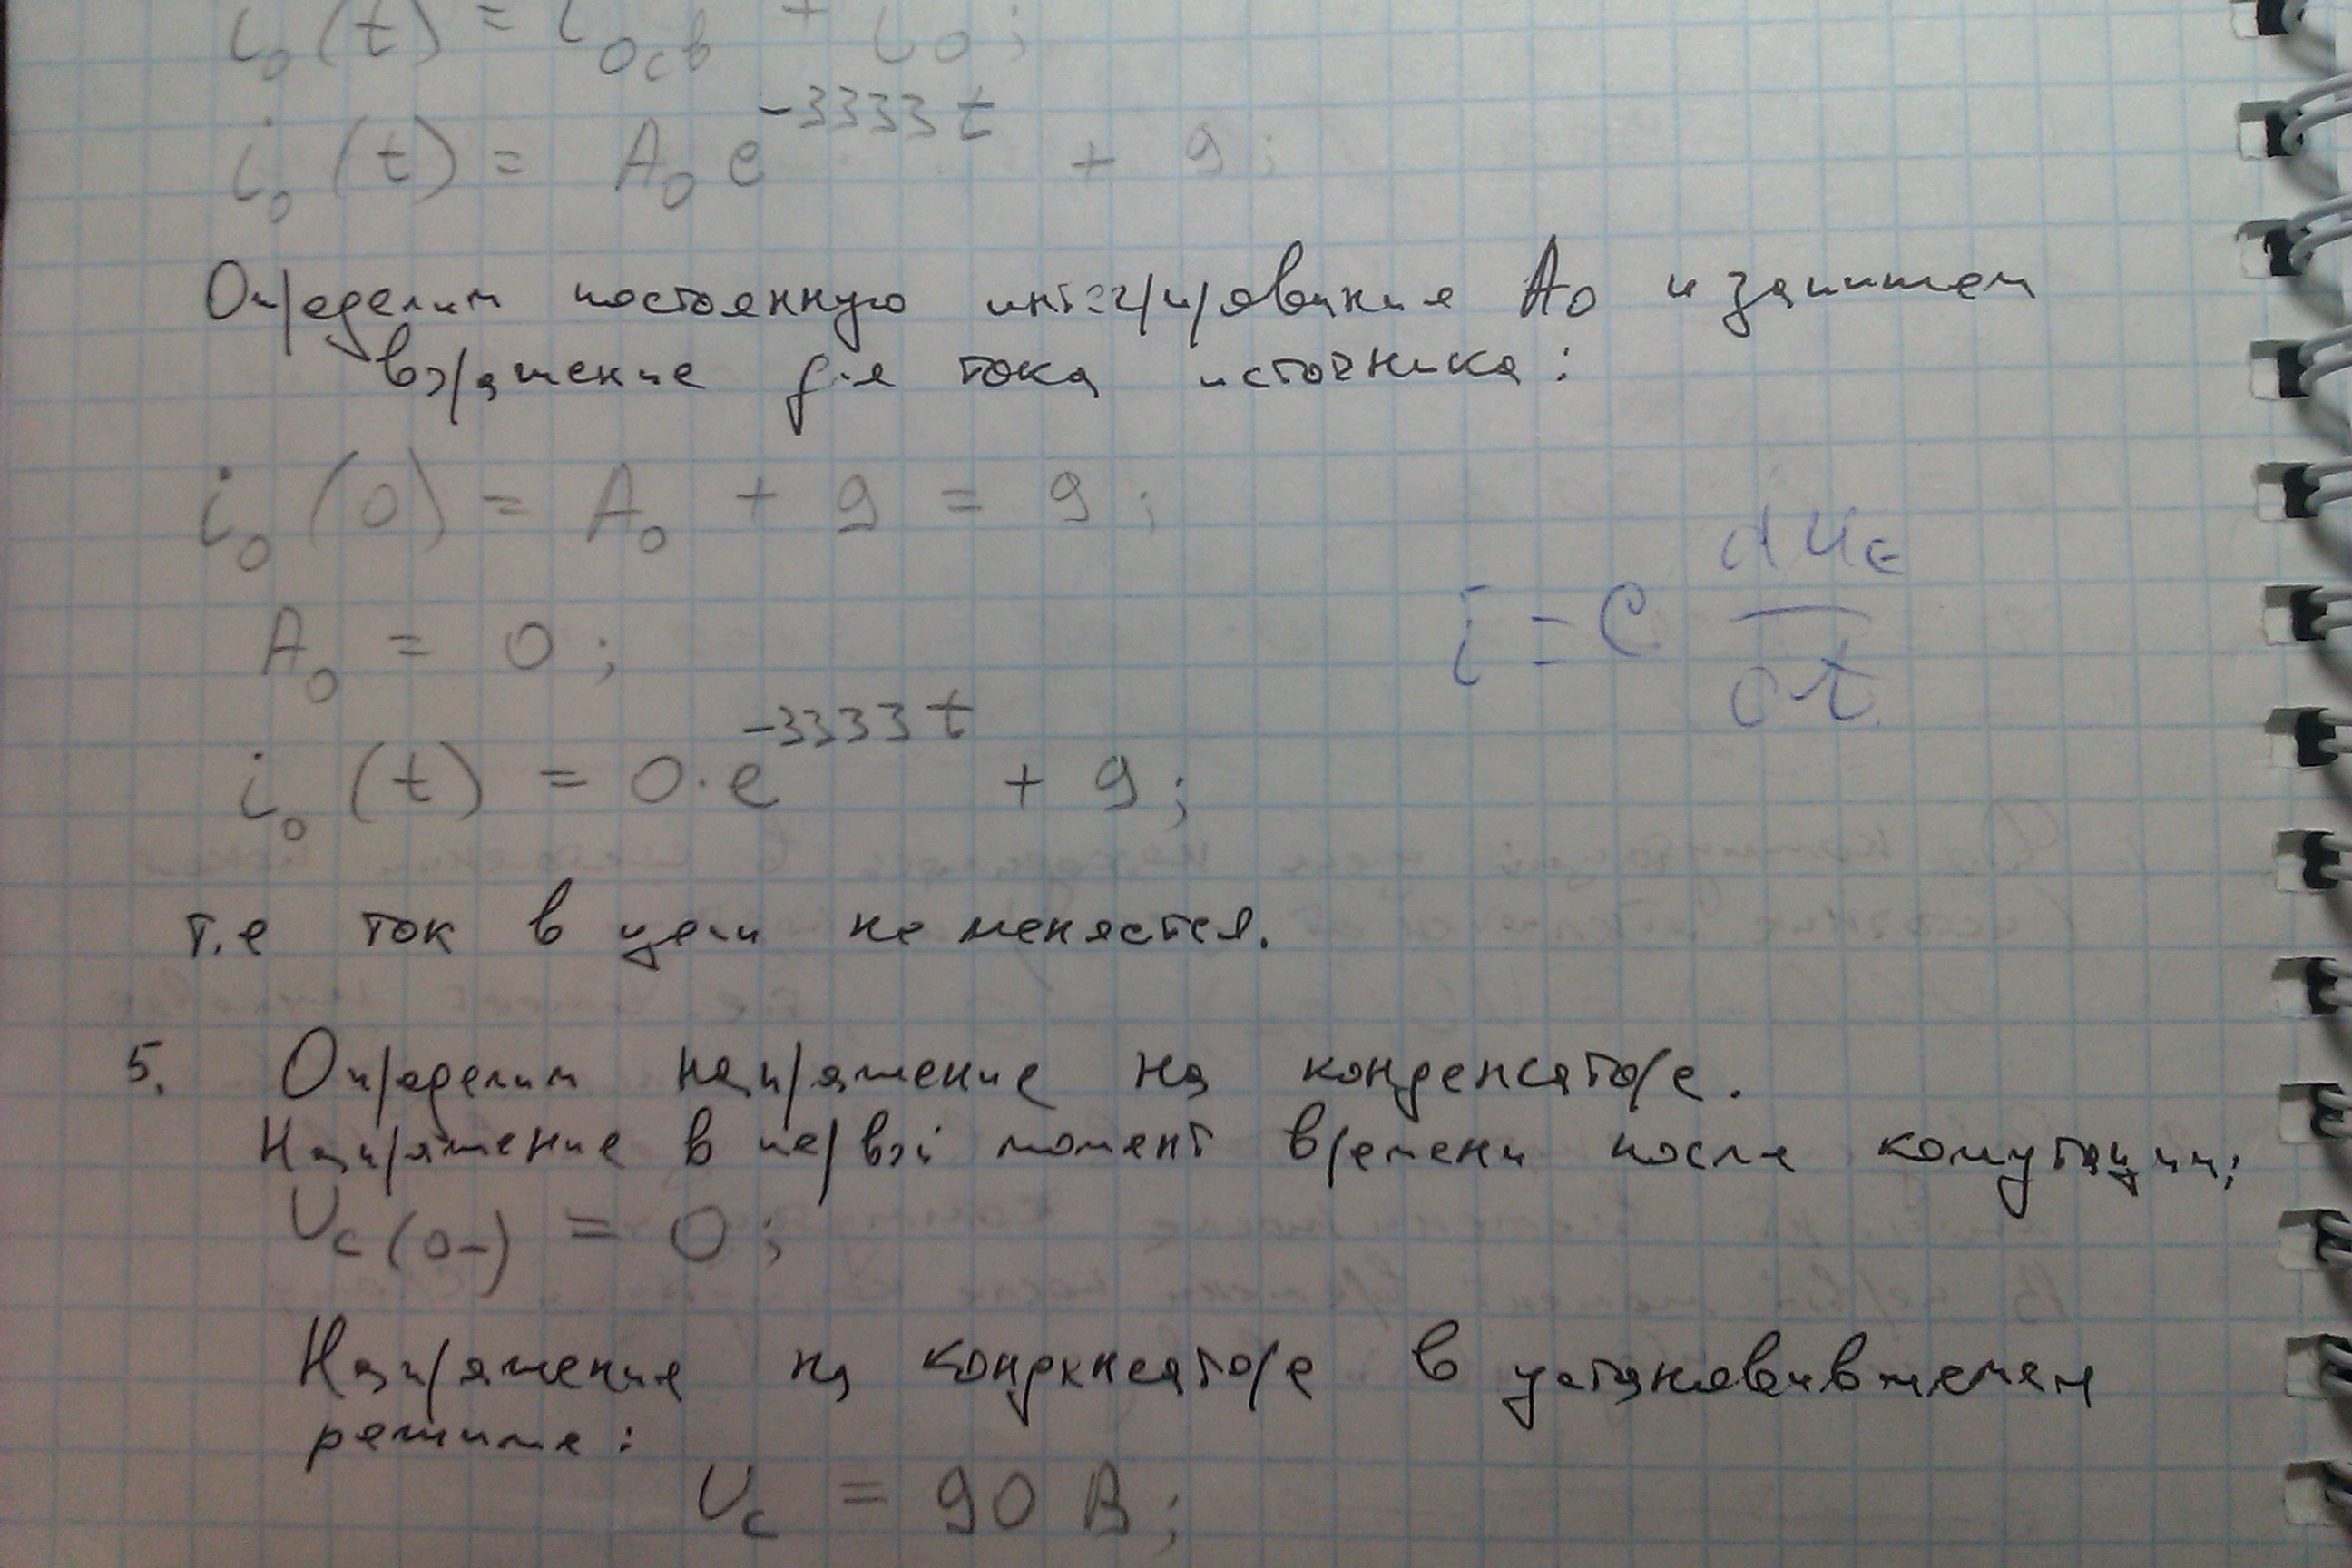 i₀(t) = i₀св + i₀;
i₀(t) = A₀ e^{-3333t} + 9;
Определим постоянную интегрирования A₀ и запишем
выражение для тока источника:
i₀(0) = A₀ + 9 = 9;
A₀ = 0;
i = C duc/dt
i₀(t) = 0·e^{-3333t} + 9;
т.е ток в цепи не меняется.
5. Определим напряжение на конденсаторе.
Напряжение в первый момент времени после комутации:
Uc(0-) = 0;
Напряжение на конденсаторе в установившемся
режиме:
Uc = 90 В;